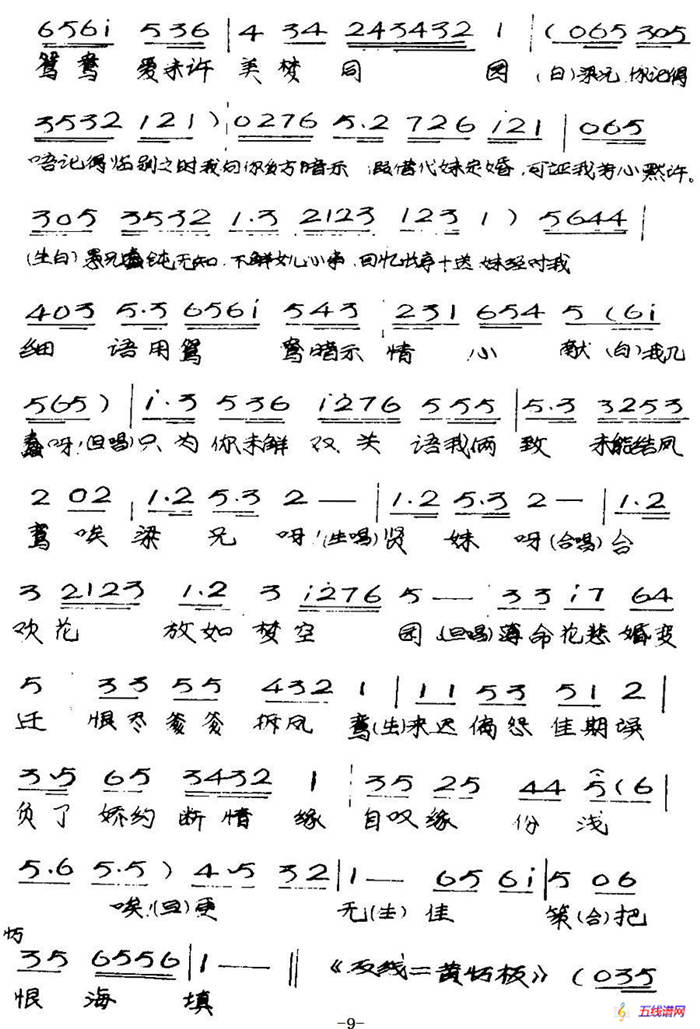 6561 536 | 4 34 243432 1 | (065 305
鸳鸯 爱未许 美梦 同 圆 (白)梁兄,你记得
3532 121) 0276 5.2 726 121 | 065
唔记得临别之时我向你多方暗示 假借代妹定婚,可证我芳心默许。
305 3532 1.3 2123 123 1) 5644 |
(生白)愚兄蠢钝无知,不解女儿心事,回忆当亭十送 妹经对我
403 5.3 6561 543 231 654 5 (61
细 语用鸳 鸯暗示 情 心 献 (白)我几
565) | 1.3 536 1276 555 | 5.3 3253
蠢呀!(旦唱)只为你未解 双关 语我俩 致 未能结凤
2 02 1.2 5.3 2 — | 1.2 5.3 2 — | 1.2
鸾 唉 梁 兄 呀!(生唱)贤 妹 呀(合唱)合
3 2123 1.2 3 1276 5 — 33 17 64
欢花 放如 梦空 圆 (旦唱)薄命花悲 婚变
5 33 55 432 1 | 11 53 51 2 |
迁 恨尽爹爹 拆凤 鸾(生)来迟偏怨 佳期误
35 65 3432 1 35 25 44 5 (6 |
负了 娇约断情 缘 自叹缘 份 浅
5.6 5.5) 45 32 | 1 — 65 61 | 5 06
唉!(旦)更 无(生)佳 策(合)把
35 6556 | 1 — ‖ 《反线二黄 板》 (035
恨 海 填
-9-
五线谱网